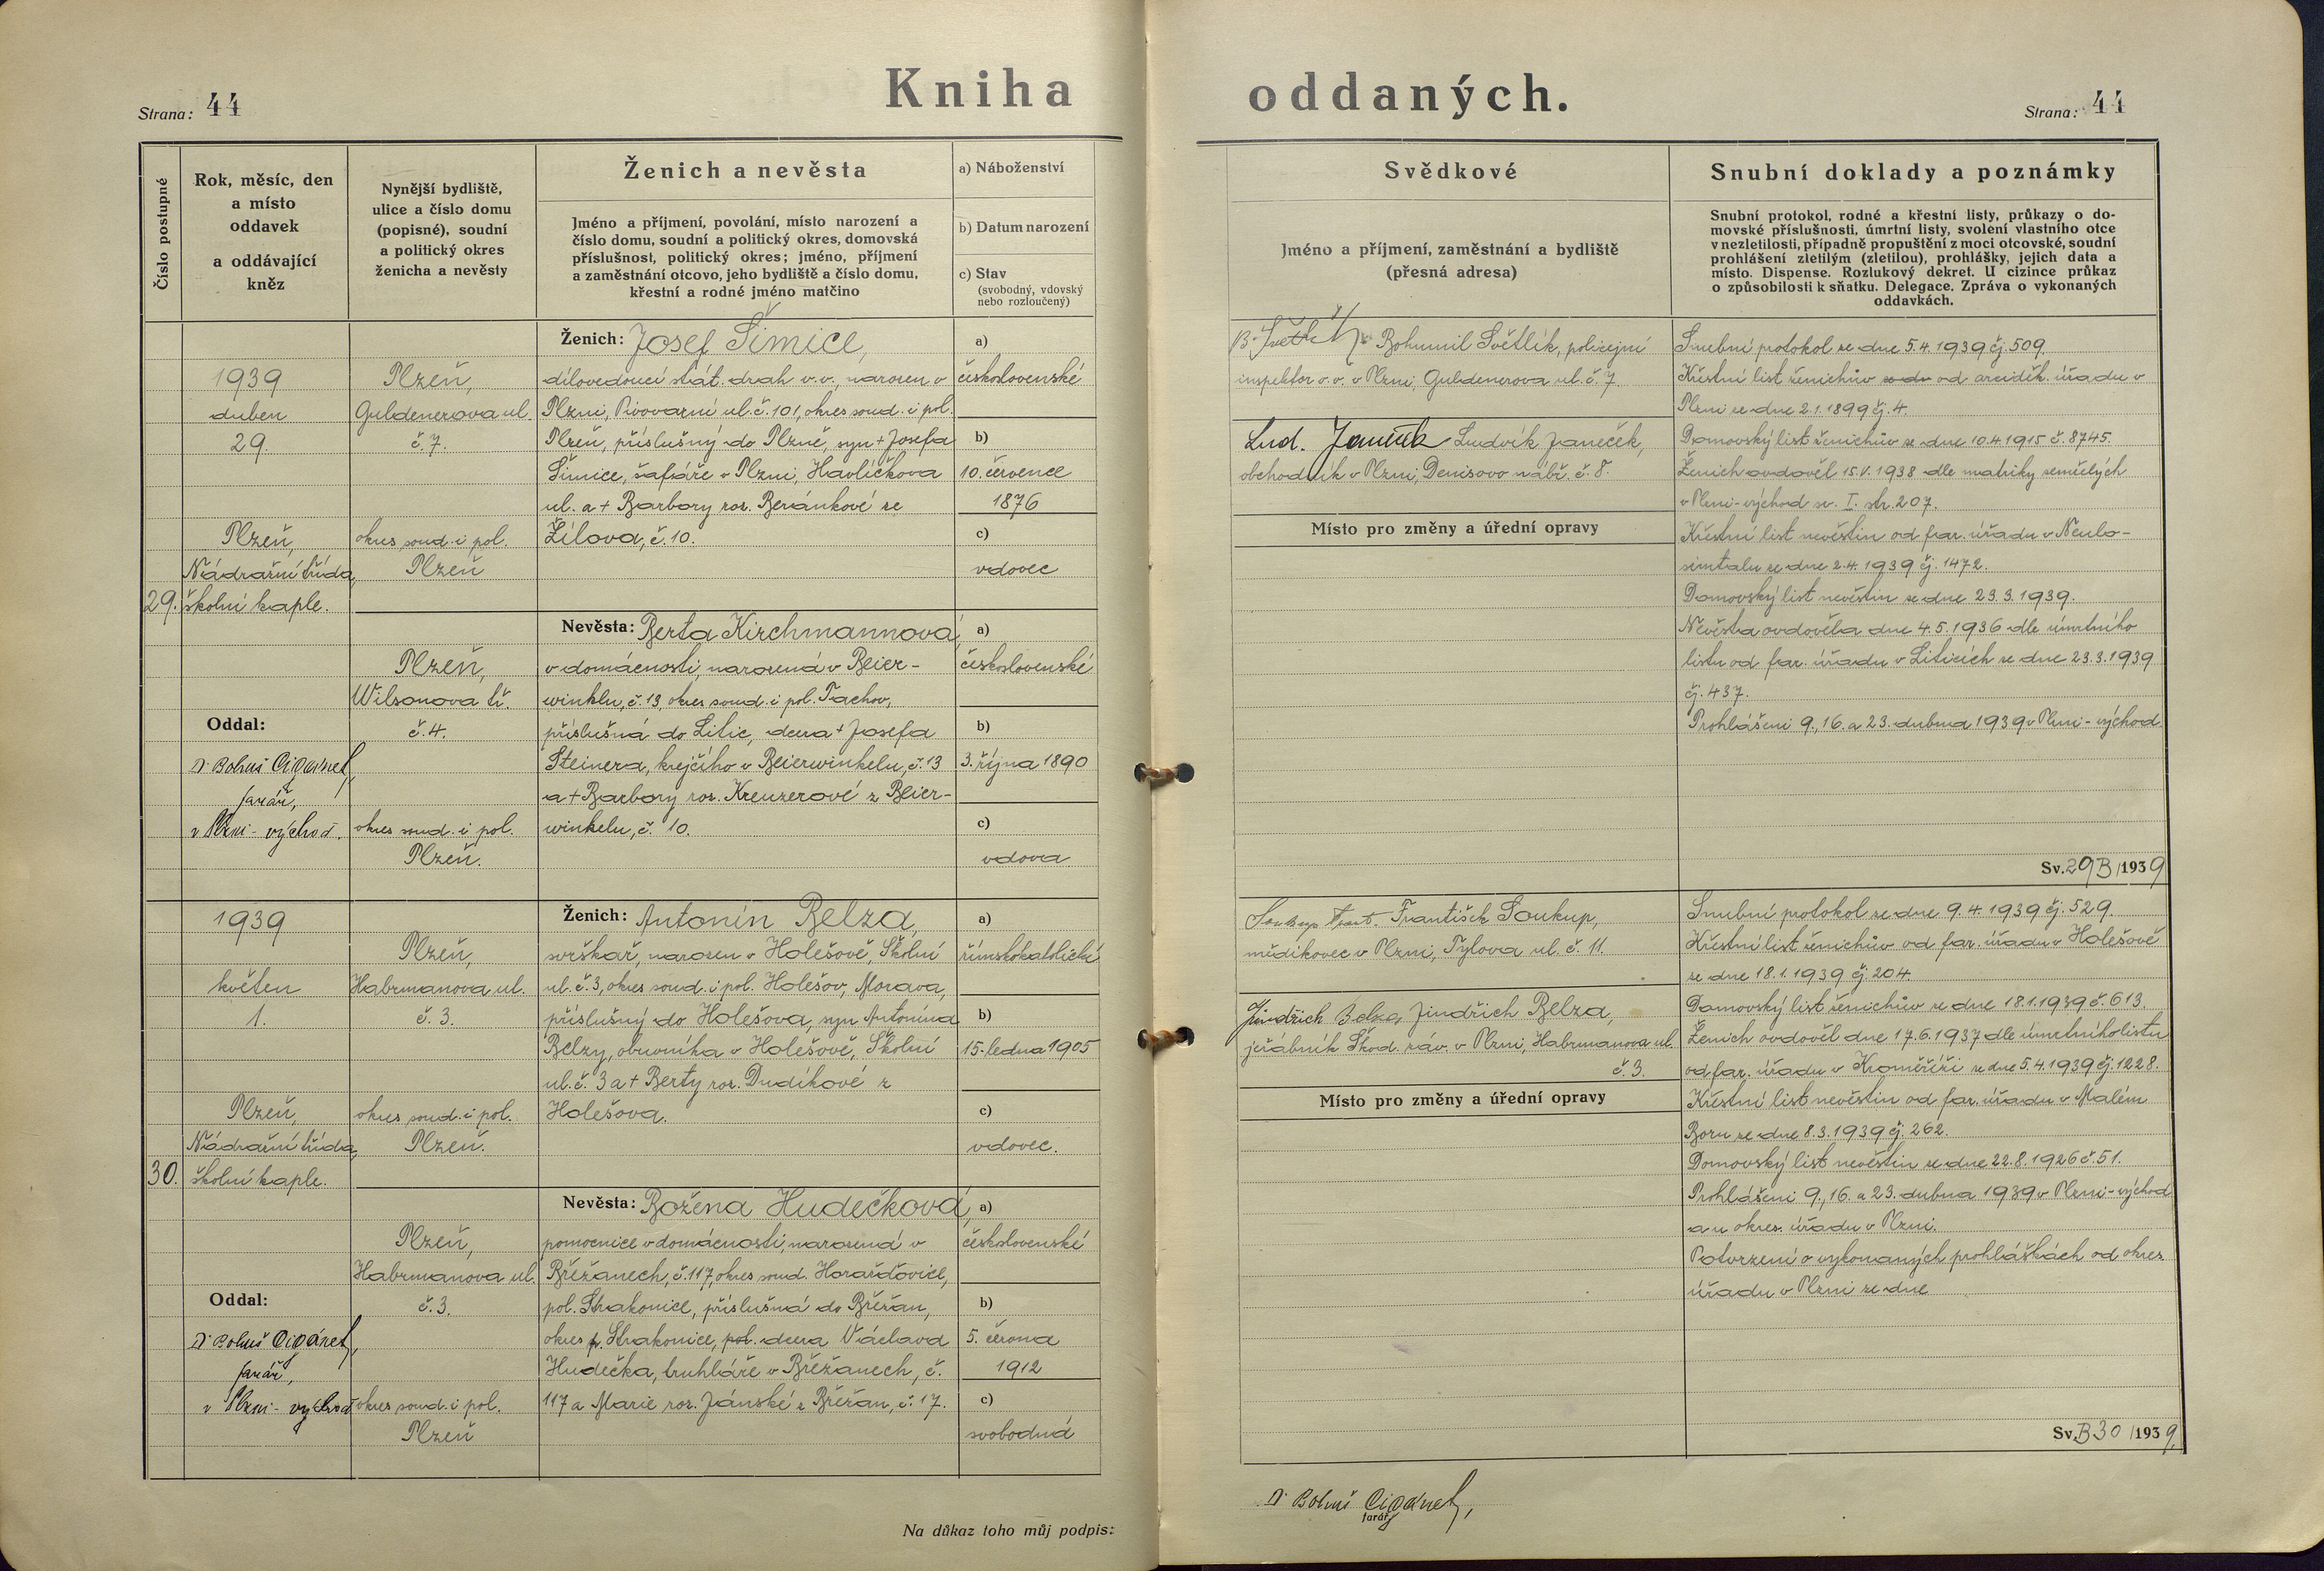 Strana: 44
Kniha oddaných.
Strana: 44
Číslo postupné
Rok, měsíc, den
a místo
oddavek
a oddávající
kněz
Nynější bydliště,
ulice a číslo domu
(popisné), soudní
a politický okres
ženicha a nevěsty
Ženich a nevěsta
Jméno a příjmení, povolání, místo narození a
číslo domu, soudní a politický okres, domovská
příslušnost, politický okres; jméno, příjmení
a zaměstnání otcovo, jeho bydliště a číslo domu,
křestní a rodné jméno matčino
a) Náboženství
b) Datum narození
c) Stav
(svobodný, vdovský
nebo rozloučený)
Svědkové
Jméno a příjmení, zaměstnání a bydliště
(přesná adresa)
Snubní doklady a poznámky
Snubní protokol, rodné a křestní listy, průkazy o do-
movské příslušnosti, úmrtní listy, svolení vlastního otce
v nezletilosti, případně propuštění z moci otcovské, soudní
prohlášení zletilým (zletilou), prohlášky, jejich data a
místo. Dispense. Rozlukový dekret. U cizince průkaz
o způsobilosti k sňatku. Delegace. Zpráva o vykonaných
oddavkách.
29.
1939
duben
29.
Plzeň,
Nádražní třída,
školní kaple.
Oddal:
Dr Bohuš Cigánek,
farář,
v Plzni - východ.
Plzeň,
Guldenerova ul.
č. 7.
okres soud. i pol.
Plzeň
Plzeň,
Wilsonova tř.
č. 4.
okres soud. i pol.
Plzeň.
Ženich: Josef Šimice,
dílovedoucí stát. drah v. v., narozen v
Plzni, Pivovarní ul. č. 101, okres soud. i pol.
Plzeň, příslušný do Plzně, syn + Josefa
Šimice, šafáře v Plzni, Havlíčkova
ul. a + Barbory roz. Beránkové ze
Žilova, č. 10.
Nevěsta: Berta Kirchmannová,
v domácnosti, narozená v Beier-
winklu, č. 13, okres soud. i pol. Tachov,
příslušná do Litic, dcera + Josefa
Steinera, krejčího v Beierwinkelu, č. 13
a + Barbory roz. Kreuzerové z Beier-
winkelu, č. 10.
a)
československé
b)
10. července
1876
c)
vdovec
a)
československé
b)
3. října 1890
c)
vdova
Bohumil Světlík, policejní
inspektor v. v. v Plzni, Guldenerova ul. č. 7.
Lud. Janeček Ludvík Janeček,
obchodník v Plzni, Denisovo nábř. č. 8.
Místo pro změny a úřední opravy
Snubní protokol ze dne 5. 4. 1939 čj. 509.
Křestní list ženichův od arciděk. úřadu v
Plzni ze dne 2. 1. 1899 čj. 4.
Domovský list ženichův ze dne 10. 4. 1915 č. 8745.
Ženich ovdověl 15. V. 1938 dle matriky zemřelých
v Plzni-východ sv. I. str. 207.
Křestní list nevěstin od far. úřadu v Neulo-
simtalu ze dne 2. 4. 1939 čj. 1472.
Domovský list nevěstin ze dne 23. 3. 1939.
Nevěsta ovdověla dne 4. 5. 1936 dle úmrtního
listu od far. úřadu v Liticích ze dne 23. 3. 1939
čj. 437.
Prohlášeni 9., 16. a 23. dubna 1939 v Plzni - východ.
Sv. 29B/1939
30.
1939
květen
1.
Plzeň,
Nádražní třída,
školní kaple.
Oddal:
Dr Bohuš Cigánek,
farář,
v Plzni - východ
Plzeň,
Habrmanova ul.
č. 3.
okres soud. i pol.
Plzeň.
Plzeň,
Habrmanova ul.
č. 3.
okres soud. i pol.
Plzeň
Ženich: Antonín Belza,
svrškař, narozen v Holešově, Školní
ul. č. 3, okres soud. i pol. Holešov, Morava,
příslušný do Holešova, syn Antonína
Belzy, obuvníka v Holešově, Školní
ul. č. 3 a + Berty roz. Dudíkové z
Holešova.
Nevěsta: Božena Hudečková,
pomocnice v domácnosti, narozená v
Břežanech, č. 117, okres soud. Horažďovice,
pol. Strakonice, příslušná do Břežan,
okres p. Strakonice, pol. dcera Václava
Hudečka, truhláře v Břežanech, č.
117 a Marie roz. Jánské z Břežan, č. 17.
a)
římskokatolické
b)
15. ledna 1905
c)
vdovec.
a)
československé
b)
5. června
1912
c)
svobodná
Soukup Frant. František Soukup,
mědikovec v Plzni, Tylova ul. č. 11.
Jindřich Belza, Jindřich Belza,
jeřábník Škod. záv. v Plzni, Habrmanova ul.
č. 3.
Místo pro změny a úřední opravy
Snubní protokol ze dne 9. 4. 1939 čj. 529.
Křestní list ženichův od far. úřadu v Holešově
ze dne 18. 1. 1939 čj. 204.
Domovský list ženichův ze dne 18. 1. 1939 č. 613.
Ženich ovdověl dne 17. 6. 1937 dle úmrtního listu
od far. úřadu v Kroměříži ze dne 5. 4. 1939 čj. 1228.
Křestní list nevěstin od far. úřadu v Malém
Boru ze dne 8. 3. 1939 čj. 262.
Domovský list nevěstin ze dne 22. 8. 1926 č. 51.
Prohlášeni 9., 16. a 23. dubna 1939 v Plzni - východ
a u okres. úřadu v Plzni.
Potvrzení o vykonaných prohláškách od okres.
úřadu v Plzni ze dne
Sv. B30/1939.
Na důkaz toho můj podpis:
Dr Bohuš Cigánek,
farář